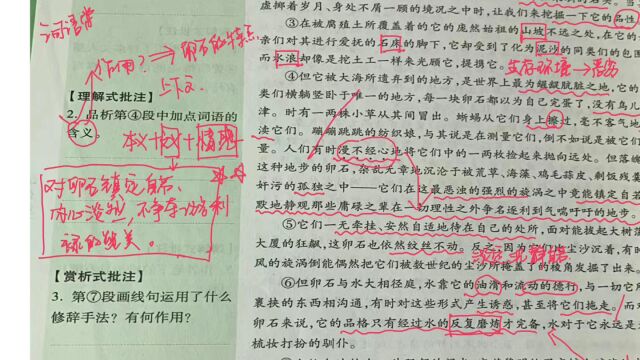 词语赏
作用? ⇒ 卵石的特点
上下文
【理解式批注】
2. 品析第④段中加点词语的
含义。
本义+
+情感
对卵石镇定自若、
内心淡然,不争夺功名利
禄的赞美。
【赏析式批注】
3. 第⑦段画线句运用了什么
修辞手法?有何作用?
虚掷着岁月、身处不屑一顾的境况之中时,让我们来挖掘一下它的品性
③在被腐殖土所覆盖着的它的庞然始祖的山坡不远之处,在它的
亲们对其进行爱抚的石床的脚下,它却受到了化为泥沙的同类们的包围
而水浪却像是挖土工一样来光顾它,提携它。
生存环境→恶劣
④但它被大海所遗弃到的地方,是世界上最为龌龊肮脏之地,它的
类们横躺竖卧于唯一的地方,每一块卵石都以为自己完蛋了,没有鸟儿
津。时有一两株小草从其间冒出。蜥蜴从它们身上擦过,毫不客气地
渎它们。蹦蹦跳跳的蚂蚁,与其说是在测量它们,倒不如说是被它们
量。人们有时漫不经心地将它们中的一两枚捡起来抛向远处。但落
这种地步的卵石,杂乱无章地沉沦于被荒草、海藻、鸡毛蒜皮、剩饭残羹
奸污的孤独之中——它们在这最恶浊的强烈的旋涡之中竟能镇定自若
默地静观那些庸碌之辈在一切理性之外争名逐利到气喘吁吁的地步。
⑤它们一无牵挂、安然自适地待在自己的处所,面对能拔起大树荡
大厦的狂飙,这卵石也依然纹丝不动。反之,因为它们
尘沙沉着,有时
风的旋涡倒能偶然把它们被数世纪的尘沙所掩盖了的棱角发掘了出来。
⑥但卵石与水大相径庭,水靠它的油滑和流动的德行,与一切它所
裹挟的东西相沟通,有时对这些形式产生诱惑,甚至将它们拖走。而
卵石来说,它的品格只有经过水的反复磨炼才完备,水对于它永远是
梳妆打扮的驯仆。